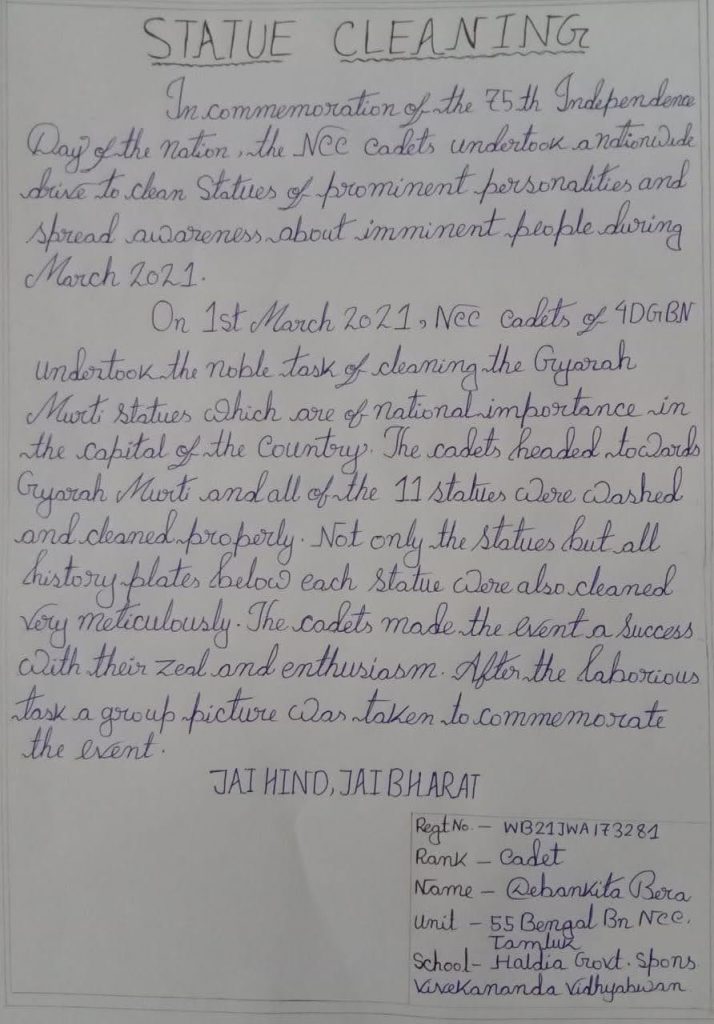 STATUE CLEANING
In commemoration of the 75th Independence
Day of the nation, the NCC cadets undertook a nationwide
drive to clean Statues of prominent personalities and
spread awareness about imminent people during
March 2021.
On 1st March 2021, NCC cadets of 4DGBN
undertook the noble task of cleaning the Gyarah
Murti statues which are of national importance in
the capital of the Country. The cadets headed towards
Gyarah Murti and all of the 11 statues were washed
and cleaned properly. Not only the statues but all
history plates below each statue were also cleaned
very meticulously. The cadets made the event a success
with their zeal and enthusiasm. After the laborious
task a group picture was taken to commemorate
the event.
JAI HIND, JAI BHARAT
Regt No. - WB21JWA173281
Rank - Cadet
Name - Debankita Bera
Unit - 55 Bengal Bn NCC,
Tamluk
School- Haldia Govt. Spons
Vivekananda Vidhyabwan